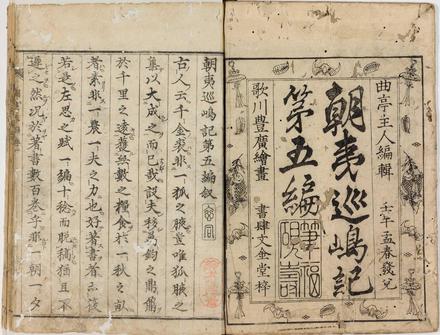 曲亭主人編輯 壬午孟春發兌
朝夷巡嶋記
第五編
筆福硯壽
歌川豊廣繪畫 書肆文金堂梓
朝夷巡嶋記第五編叙
古人云千金裘非一狐之腋豈唯狐腋之
集以大成之而已哉設夫移萬鈞之鼎
於千里之遠獲無數之糧食於一秋之畝
者素非一農一夫之力也好著書者亦復
若是左思之賦一編十稔而脱稿猶且不
之然况於著書數百巻乎非一朝一夕